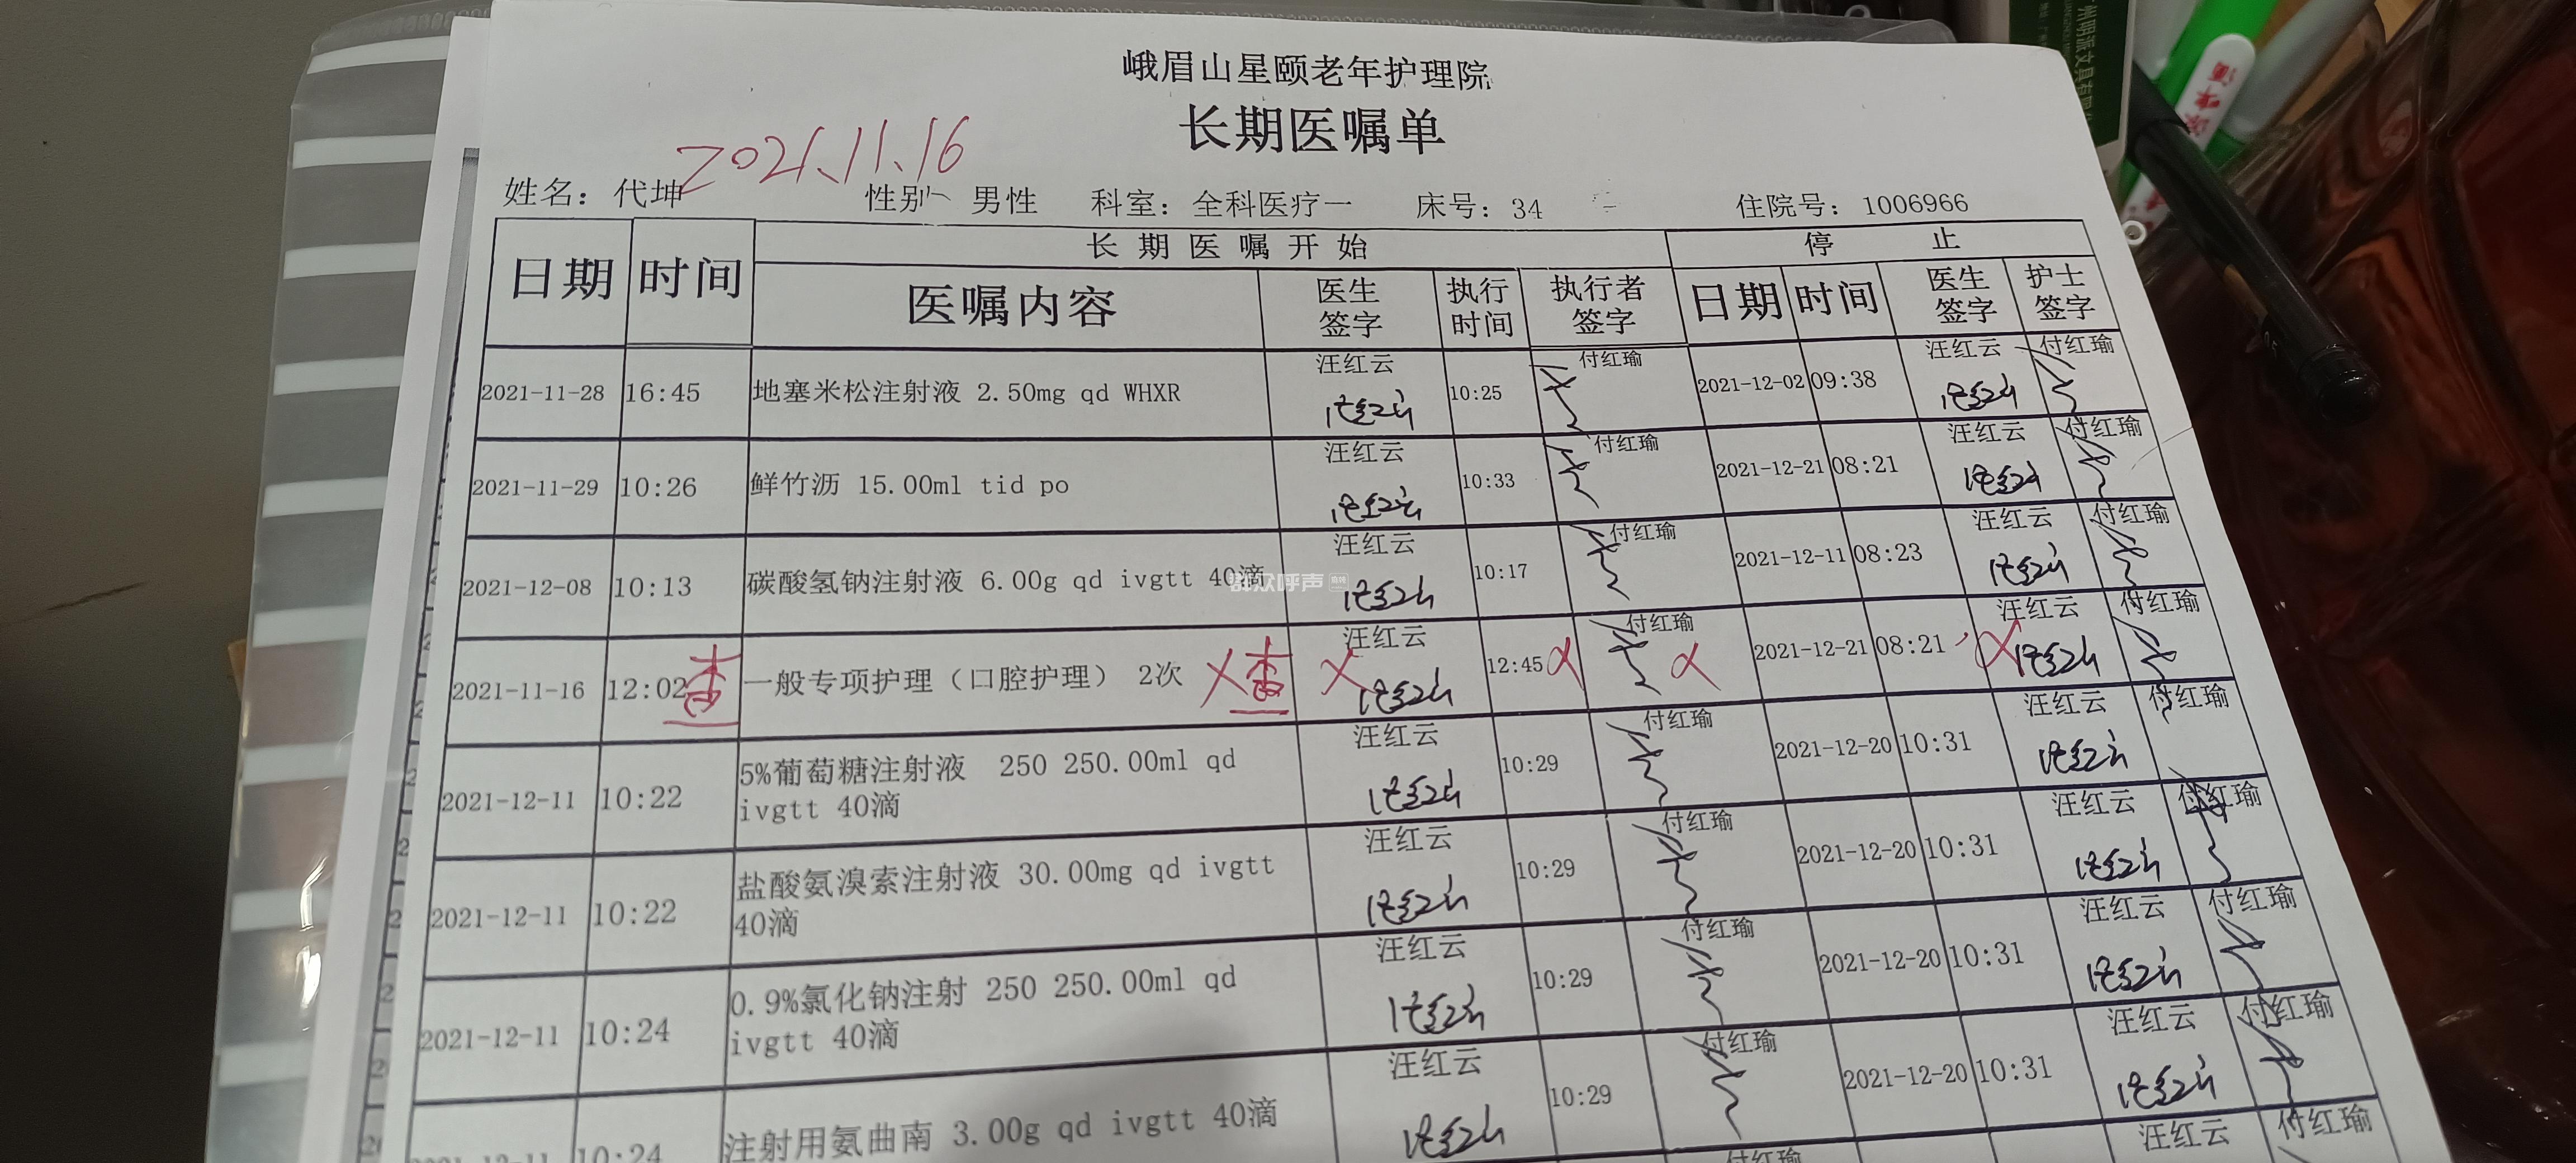 峨眉山星颐老年护理院
长期医嘱单
2021.11.16
姓名：代坤 性别 男性 科室：全科医疗一 床号：34 住院号：1006966
日期 时间 长期医嘱开始 停止
医嘱内容 医生签字 执行时间 执行者签字 日期 时间 医生签字 护士签字
2021-11-28 16:45 地塞米松注射液 2.50mg qd WHXR 汪红云 10:25 付红瑜 2021-12-02 09:38 汪红云 付红瑜
2021-11-29 10:26 鲜竹沥 15.00ml tid po 汪红云 10:33 付红瑜 2021-12-21 08:21 汪红云 付红瑜
2021-12-08 10:13 碳酸氢钠注射液 6.00g qd ivgtt 40滴 汪红云 10:17 付红瑜 2021-12-11 08:23 汪红云 付红瑜
群众呼声
2021-11-16 12:02 查 一般专项护理（口腔护理） 2次 X 查 X 汪红云 12:45 付红瑜 2021-12-21 08:21 汪红云 付红瑜
2021-12-11 10:22 5%葡萄糖注射液 250 250.00ml qd 汪红云 10:29 付红瑜 2021-12-20 10:31 汪红云 付红瑜
ivgtt 40滴
2021-12-11 10:22 盐酸氨溴索注射液 30.00mg qd ivgtt 汪红云 10:29 付红瑜 2021-12-20 10:31 汪红云 付红瑜
40滴
2021-12-11 10:24 0.9%氯化钠注射 250 250.00ml qd 汪红云 10:29 付红瑜 2021-12-20 10:31 汪红云 付红瑜
ivgtt 40滴
10:24 注射用氨曲南 3.00g qd ivgtt 40滴 汪红云 10:29 付红瑜 2021-12-20 10:31 汪红云 付红瑜
付红瑜 汪红云 付红瑜